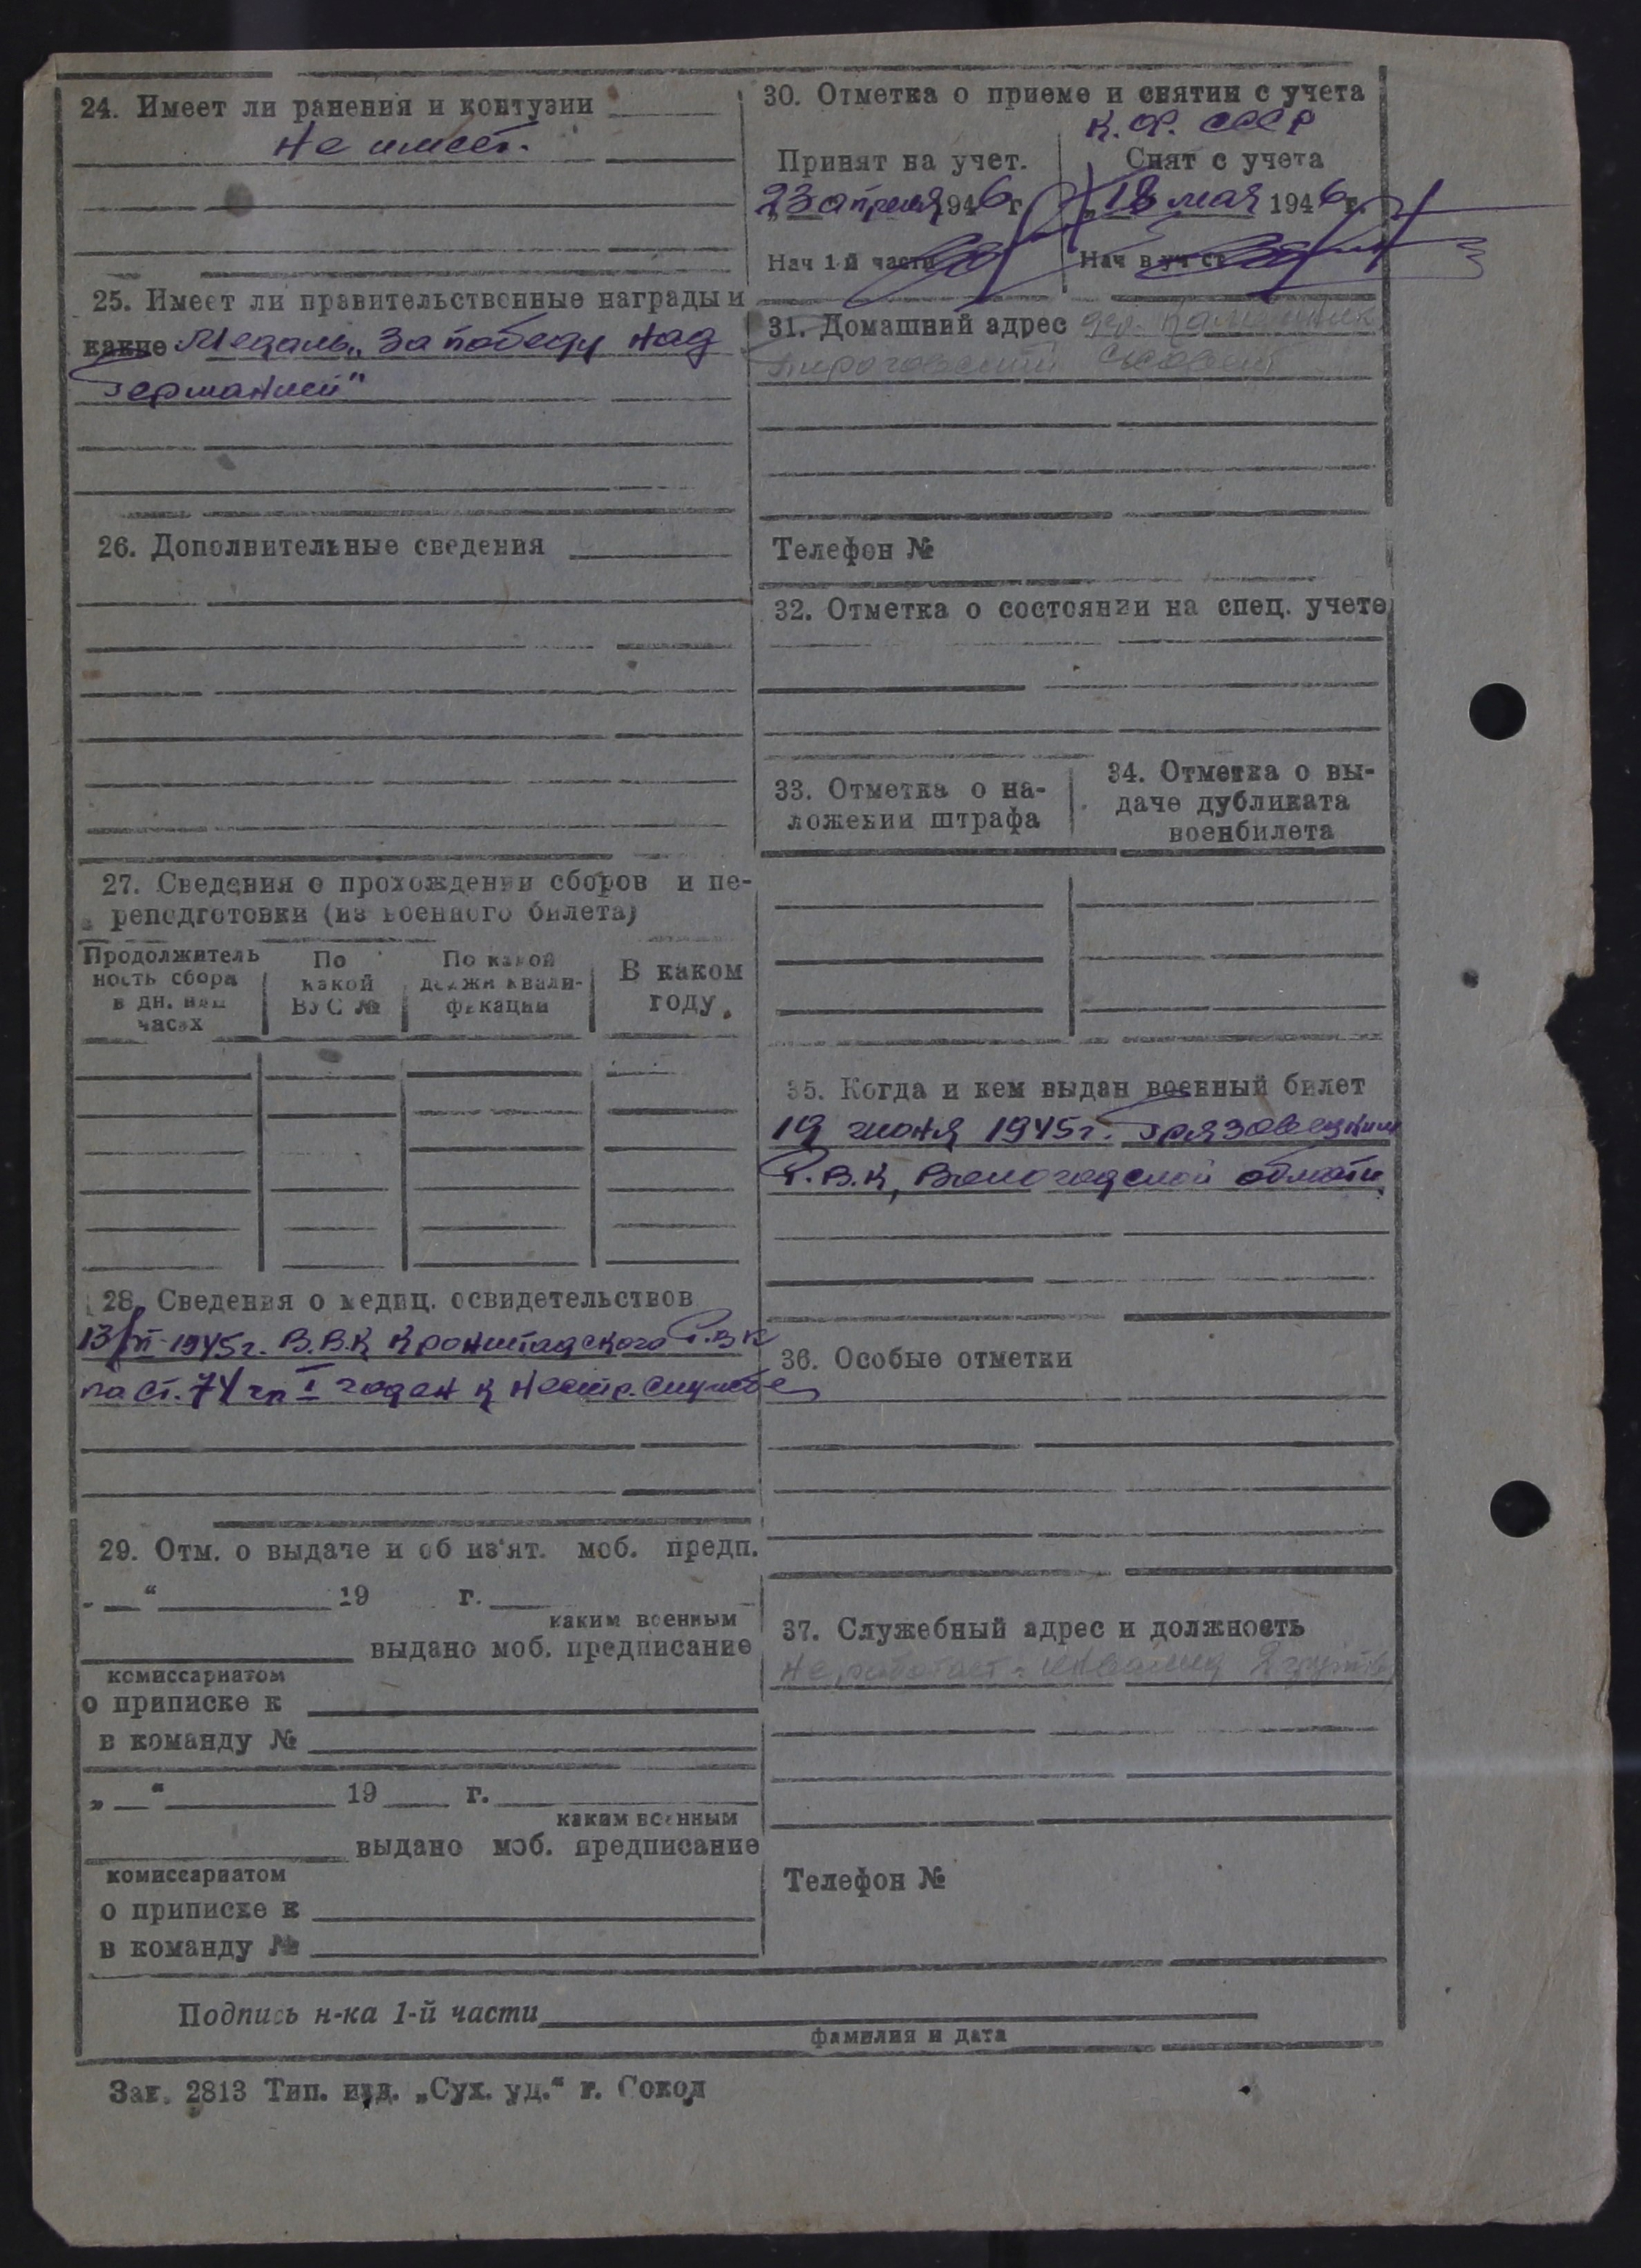 24. Имеет ли ранения и контузии
Не имеет.
25. Имеет ли правительственные награды и
какие Медаль „За победу над
Германией"
26. Дополнительные сведения
27. Сведения о прохождении сборов и пе-
реподготовки (из военного билета)
Продолжитель
ность сбора
в дн. или
часах
По
какой
ВУС №
По какой
должн квали-
фикации
В каком
году.
28. Сведения о медиц. освидетельствов
13/VI-1945г. В.В.К Кронштадского Р.В.К
по ст. 74 гр I годен к нестр. службе
29. Отм. о выдаче и об из'ят. моб. предп.
„ “ 19 г.
каким военным
выдано моб. предписание
комиссариатом
о приписке к
в команду №
„ “ 19 г.
каким военным
выдано моб. предписание
комиссариатом
о приписке к
в команду №
30. Отметка о приеме и снятии с учета
К.Ф. СССР
Принят на учет.
23 апреля 1946 г
Нач 1-й части
Снят с учета
„18 мая 1946 г.
Нач в уч ст
31. Домашний адрес дер.
Пироговский с/совет
Телефон №
32. Отметка о состоянии на спец. учете
33. Отметка о на-
ложении штрафа
34. Отметка о вы-
даче дубликата
военбилета
35. Когда и кем выдан военный билет
19 июня 1945г. Грязовецким
Р.В.К, Вологодской области
36. Особые отметки
37. Служебный адрес и должность
Не работает - инвалид 2 группы
Телефон №
Подпись н-ка 1-й части
фамилия и дата
Зак. 2813 Тип. изд. „Сух. уд.“ г. Сокол